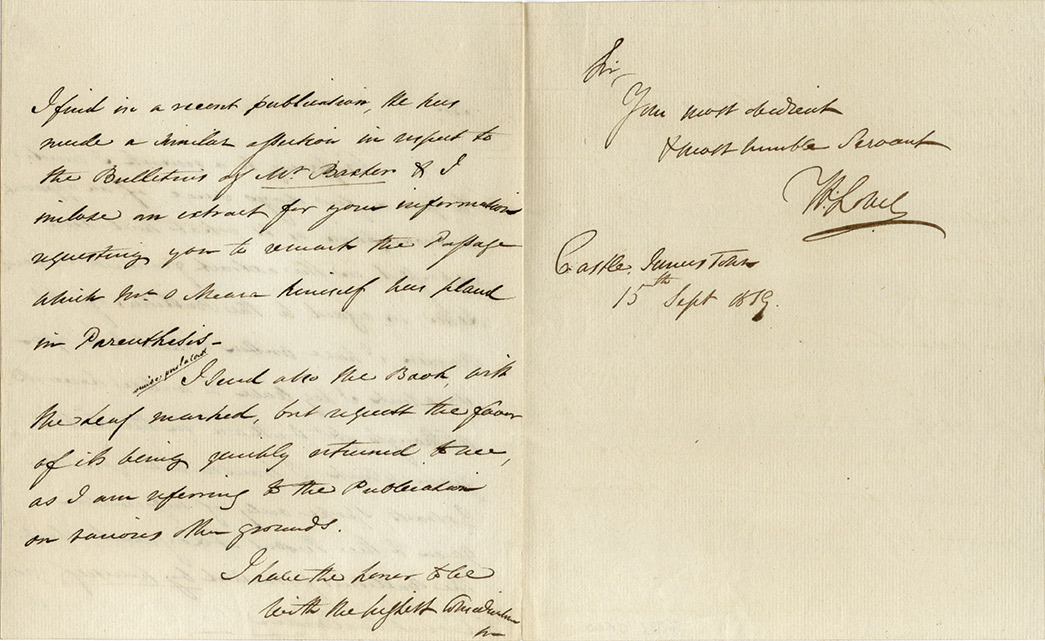 I find in a recent publication, he has
made a similar assertion in respect to
the Bulletins of Mr Baxter & I
inclose an extract for your information
requesting you to remark the Passage
which Mr. O Meara himself has placed
in Parenthesis—
I send also the Book, with
the Leaf marked, but request the favor
of its being quickly returned to me,
as I am referring to the Publication
on various other grounds.
I have the honor to be
with the highest Consideration
Sir,
Your most obedient
& most humble Servant
H: Lowe
Castle. James Town
15th Sept 1819.